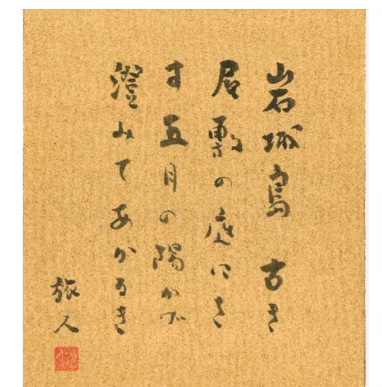 岩城島 古き
屋敷の庭にさ
す五月の陽かげ
澄みてあかるき
旅人